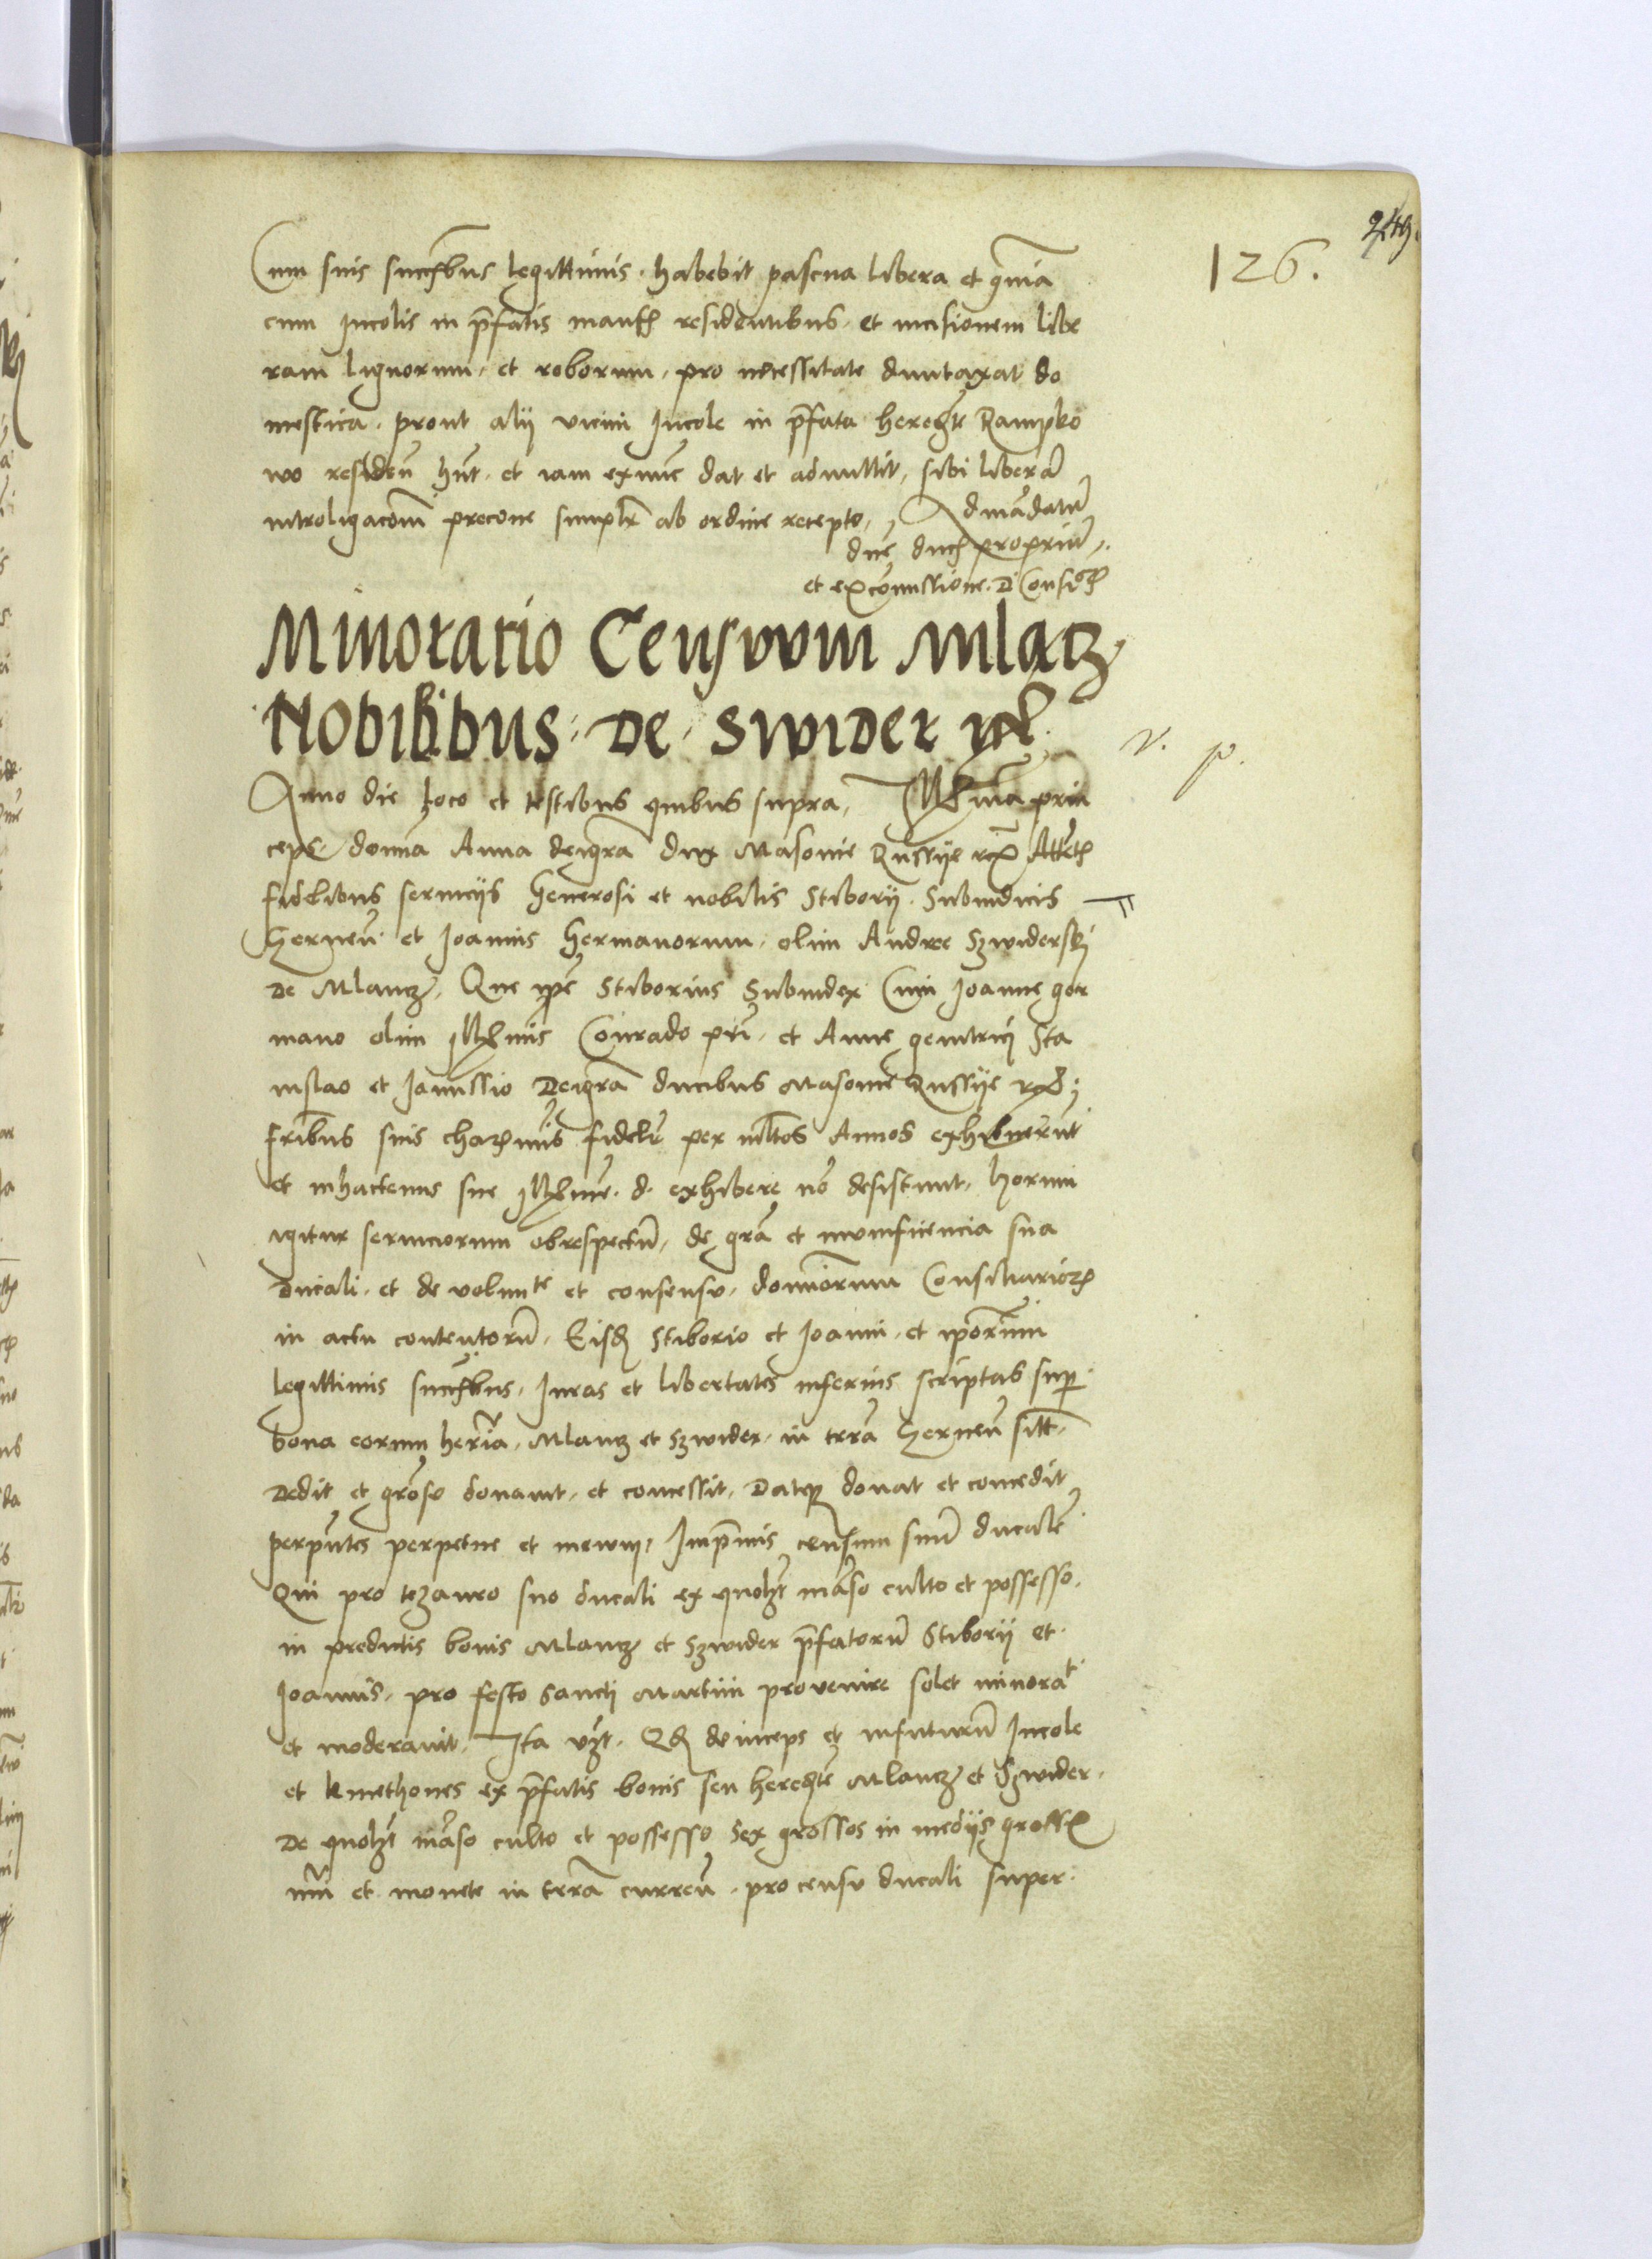 126.
Cum suis succe͞bus legittimis. habebit pascua libera et gnīa
cum Incolis in p͞fatis mansis residentibus. et incisionem libe
ram lignorum, et roborum, pro necessitate duntaxat do
mestica. prout alij vicini Incole in p͞fata heredte Rampko
wo residen̄ hn̄t. et iam exnunc dat et admittit, sibi liberā
introligacom̄ precone simplr̄ ab ordine recepto, Ad mādatū
dne duc proprīu,
et ex cōmissione. D Consi
Minoratio Censuum Mlacz
Nobilibus. De. Swider
v. p.
Anno die Loco et testibus quibus supra, Illma prin
ceps domna Anna deigra dux Masouie Russije Attētis
fidelibus seruicijs Generosi et nobilis Stiborij. Subiudicis
Cernen̄. et Joannis Germanorum. olim Andree Szwiderski
de Mlancz, Que ipē Stiborius Subiudex Cum Joanne ger
mano olim Illmis Conrado pri. et Anne genitrici Sta
nislao et Janussio Deigrā ducibus Masouie Russije
frībus suis charmis fidelr̄ per mltos Annos exhibuerunt
et inhactenus sue Illme. d. exhibere nō desistunt. horum
igitur seruiciorum obrespectū, de grā et munificencia sua
Ducali. et de volunte et consensu. dominorum Consiliariorum
in actu contentorū. Eisd Stiborio et Joanni. et ipōrum
legittimis succe͞bus. Juras et libertates inferius scriptas sup
bona eorum herīa. Mlancz et Szwider. in terrā Cernen̄ sitt.
Dedit et grōse donauit. et concessit. Datque donat et concedit
perpn̄tes perpetue et in euum. Imp͞mis censum suū ducalē
Qui pro tezauro suo ducali ex quolzt māso culto et possesso.
in predictis bonis Mlancz et Szwider p͞fatorū Stiborij et
Joannis. pro festo Sancti Martini provenire solet minorat
et moderauit. Ita vzt. Qd deinceps et infuturū Incole
et kmethones ex p͞fatis bonis seu heredte Mlancz et Szwider.
De quolzt māso culto et possesso sex grossos in medijs gross
nrī et monete in terrā curren̄. pro censu ducali super